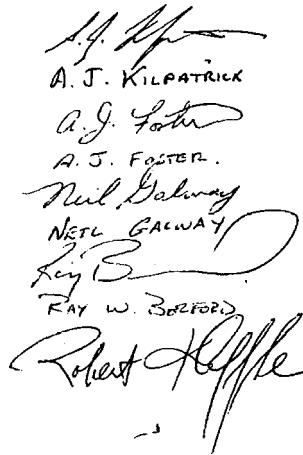 A. J. KILPATRICK
A. J. Foster
A. J. FOSTER.
Neil Galway
NEIL GALWAY
Ray B
RAY W. BOLFORD
Robert Heffle